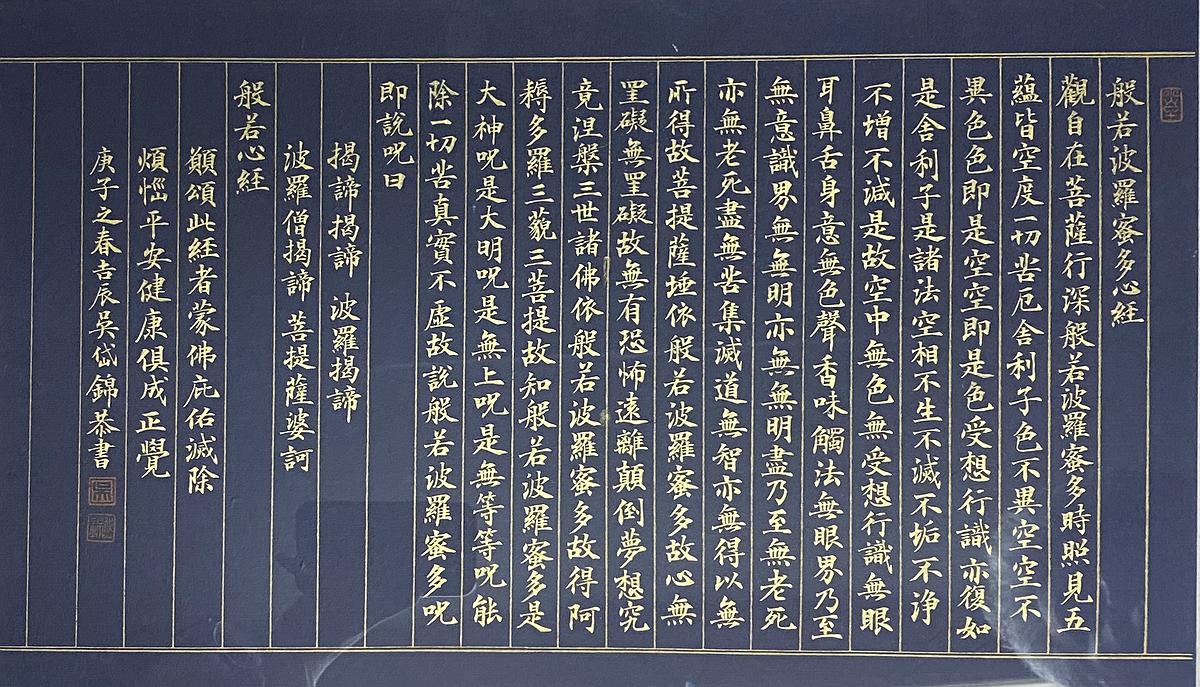 般若波羅蜜多心經
觀自在菩薩行深般若波羅蜜多時照見五
蘊皆空度一切苦厄舍利子色不異空空不
異色色即是空空即是色受想行識亦復如
是舍利子是諸法空相不生不滅不垢不净
不增不減是故空中無色無受想行識無眼
耳鼻舌身意無色聲香味觸法無眼界乃至
無意識界無無明亦無無明盡乃至無老死
亦無老死盡無苦集滅道無智亦無得以無
所得故菩提薩埵依般若波羅蜜多故心無
罣礙無罣礙故無有恐怖遠離顛倒夢想究
竟涅槃三世諸佛依般若波羅蜜多故得阿
耨多羅三藐三菩提故知般若波羅蜜多是
大神呪是大明呪是無上呪是無等等呪能
除一切苦真實不虛故說般若波羅蜜多呪
即說呪曰
揭諦揭諦 波羅揭諦
波羅僧揭諦 菩提薩婆訶
般若心經
願頌此經者蒙佛庇佑滅除
煩惱平安健康俱成正覺
庚子之春吉辰吳岱錦恭書